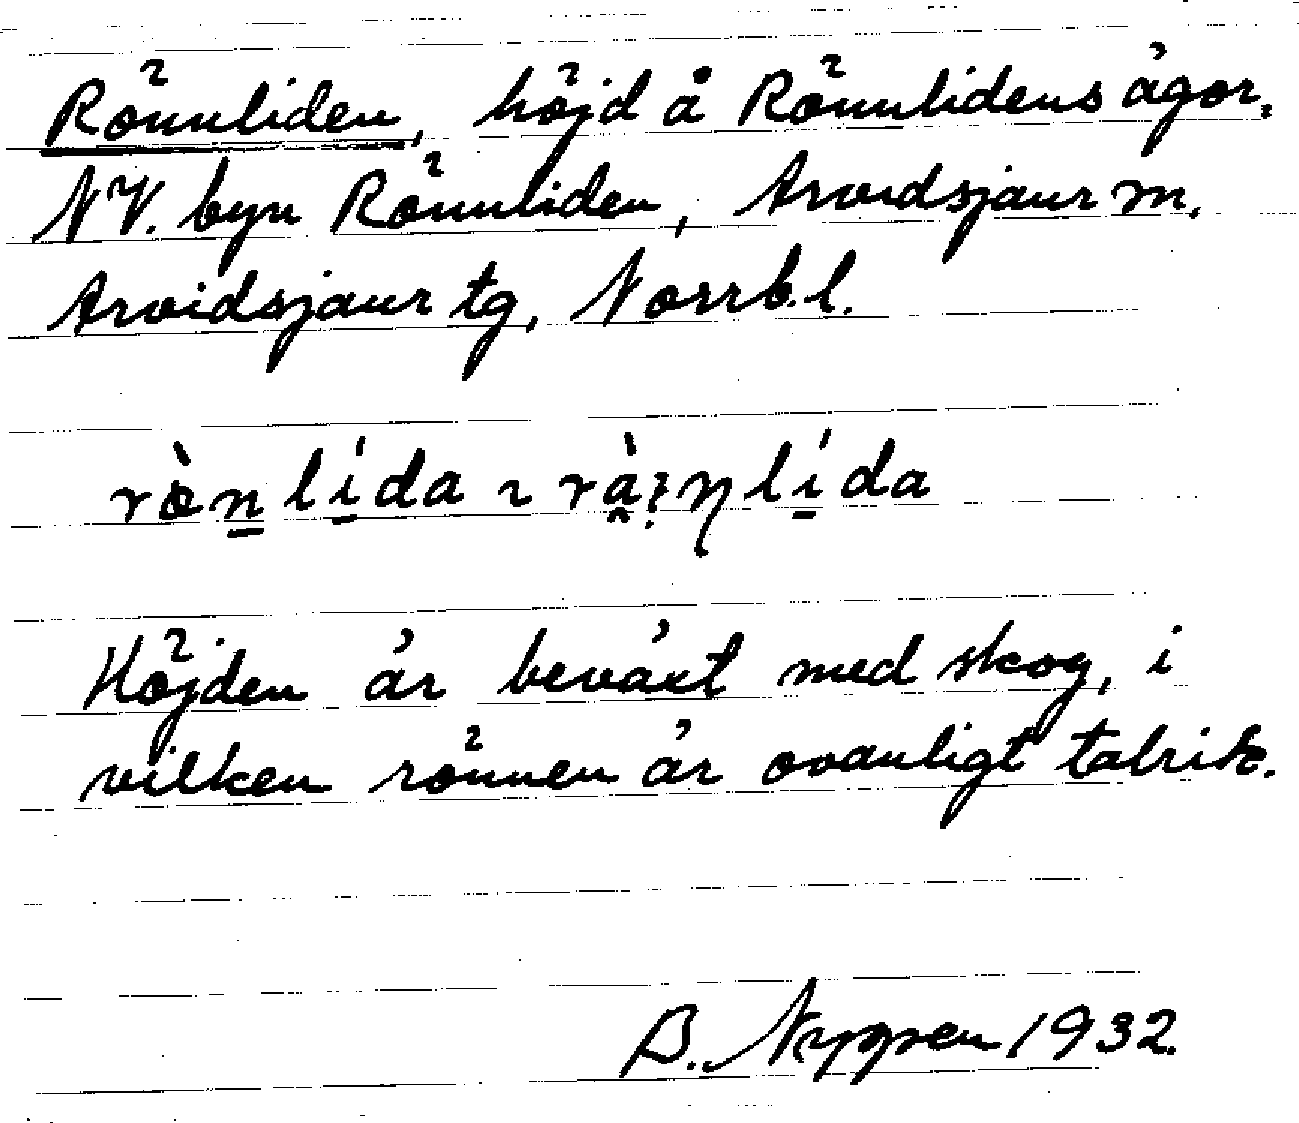 Rönnliden, höjd å Rönnlidens ägor,
NV. byn Rönnliden, Arvidsjaur sn.
Arvidsjaur tg, Norrb.l.
rö̀n̲ lí̲da ~ rà̯ŋlí̲da
Höjden är beväxt med skog, i
vilken rönnen är ovanligt talrik.
B. Nyppen 1932.